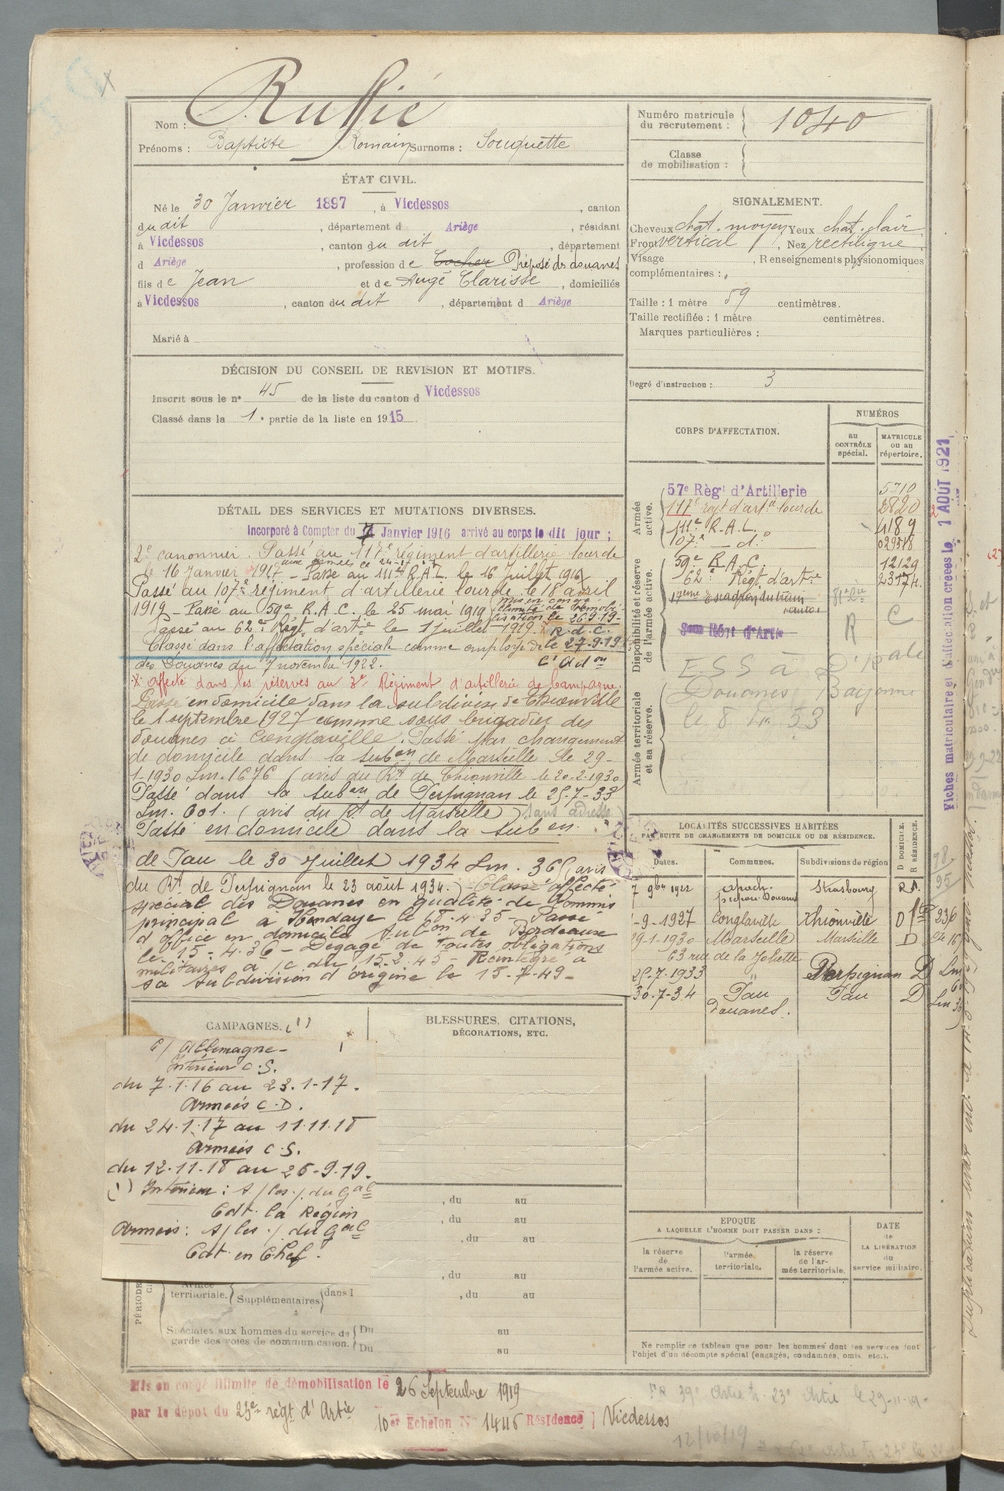 Nom : Ruffié
Prénoms : Baptiste Romain Surnoms : Souquette
Numéro matricule du recrutement : 1040
Classe de mobilisation :
ÉTAT CIVIL.
Né le 30 Janvier 1897, à Vicdessos, canton
du dit, département d Ariège, résidant
à Vicdessos, canton du dit, département
d Ariège, profession de Cocher Préposé des douanes
fils de Jean et de Augé Clarisse, domiciliés
à Vicdessos, canton du dit, départem^t d Ariège
Marié à
SIGNALEMENT.
Cheveux chat. moyen Yeux chat. clair
Front vertical, Nez rectiligne
Visage, Renseignements physionomiques
complémentaires :
Taille : 1 mètre 59 centimètres.
Taille rectifiée : 1 mètre centimètres.
Marques particulières :
Degré d'instruction : 3
DÉCISION DU CONSEIL DE REVISION ET MOTIFS.
Inscrit sous le n° 45 de la liste du canton d Vicdessos
Classé dans la 1e partie de la liste en 1915
CORPS D'AFFECTATION.
NUMÉROS
au CONTRÔLE spécial.
MATRICULE OU AU répertoire.
Armée active.
57e Règt d'Artillerie 5710
117e regt d'art^ie lourde 2820
111e R.A.L. 4189
107e d°
Disponibilité et réserve de l'armée active.
59e R.A.C. 12129
62e Régt d'art^ie 23174
R C
ESS à
Douanes Bayonne
Armée territoriale et sa réserve.
DÉTAIL DES SERVICES ET MUTATIONS DIVERSES.
Incorporé à Compter du 7 Janvier 1916 arrivé au corps le dit jour ;
2e canonnier. Passé au 117e régiment d'artillerie lourde
le 16 Janvier 1917 - Passé au 111e R.A.L. le 16 Juillet 1917
Passé au 107e régiment d'artillerie lourde le 18 avril
1919 - Passé au 59e R.A.C. le 25 mai 1919
Passé au 62e Régt d'art^ie le 1 juillet 1919. R.d.C.
Classé dans l'affectation spéciale comme employé
des Douanes du 7 novembre 1922.
affecté dans les réserves au Régiment d'artillerie de Campagne.
Passé en domicile dans la subdivison de Thionville
le 1 septembre 1927 comme sous brigadier des
douanes à Conglaville. Passé par changement
de domicile dans la subon de Marseille le 29-
1-1930 Lm. 1676 (avis du Rt de Thionville le 20-2-1930
Passé dans la subon de Perpignan le 25-7-33
Lm. 601. (avis du Rt de Marseille) sans adresse
Passé en domicile dans la subon
de Pau le 30 Juillet 1934 Lm. 36 (avis
du Rt de Perpignan le 23 août 1934.) Classé affecté
spécial des Douanes en qualité de Commis
principal à Hendaye le 18-4-35 - Passé
d'office en domicile subon de Bordeaux
le 15-4-36 - Dégagé de toutes obligations
militaires à c du 15-2-45 - Réintégré à
sa subdivision d'origine le 15-7-49-
LOCALITÉS SUCCESSIVES HABITÉES
PAR SUITE DE CHANGEMENTS DE DOMICILE OU DE RÉSIDENCE.
Dates. Communes. Subdivisions de région D DOMICILE. R RÉSIDENCE.
7 9bre 1922 Strasbourg
1-9-1927 Conglaville Thionville D
29-1-1930 Marseille Marseille D
63 rue de la Joliette
25-7-1933 " Perpignan D
30-7-34 Pau Pau D
Douanes.
Fiches matriculaire et d'affectation créées le 1 AOUT 1921
CAMPAGNES. (1)
c/ Allemagne-
Intérieur C.S.
du 7-1-16 au 23-1-17.
Armées C.D.
du 24-1-17 au 11-11-18
Armées C.S.
du 12-11-18 au 26-9-19.
(1) Intérieur : s/ les o/ du Gal
Cdt la Région
Armées : s/ les o/ du Gal
Cdt en Chef.
BLESSURES, CITATIONS,
DÉCORATIONS, ETC.
, du au
, du au
, du au
, du au
territoriale. Supplémentaires dans l , du au
Spéciales aux hommes du service de garde des voies de communication. Du au
Du au
EPOQUE
A LAQUELLE L'HOMME DOIT PASSER DANS :
la réserve de l'armée active.
l'armée. territoriale.
la réserve de l'armée territoriale.
DATE de LA LIBÉRATION du service militaire.
Ne remplir ce tableau que pour les hommes dont les services font
l'objet d'un décompte spécial (engagés, condamnés, omis, etc.).
Mis en congé illimité de démobilisation le 26 Septembre 1919
par le dépôt du 23e régt d'Artie 10er Echelon N° 1446 Résidence Vicdessos